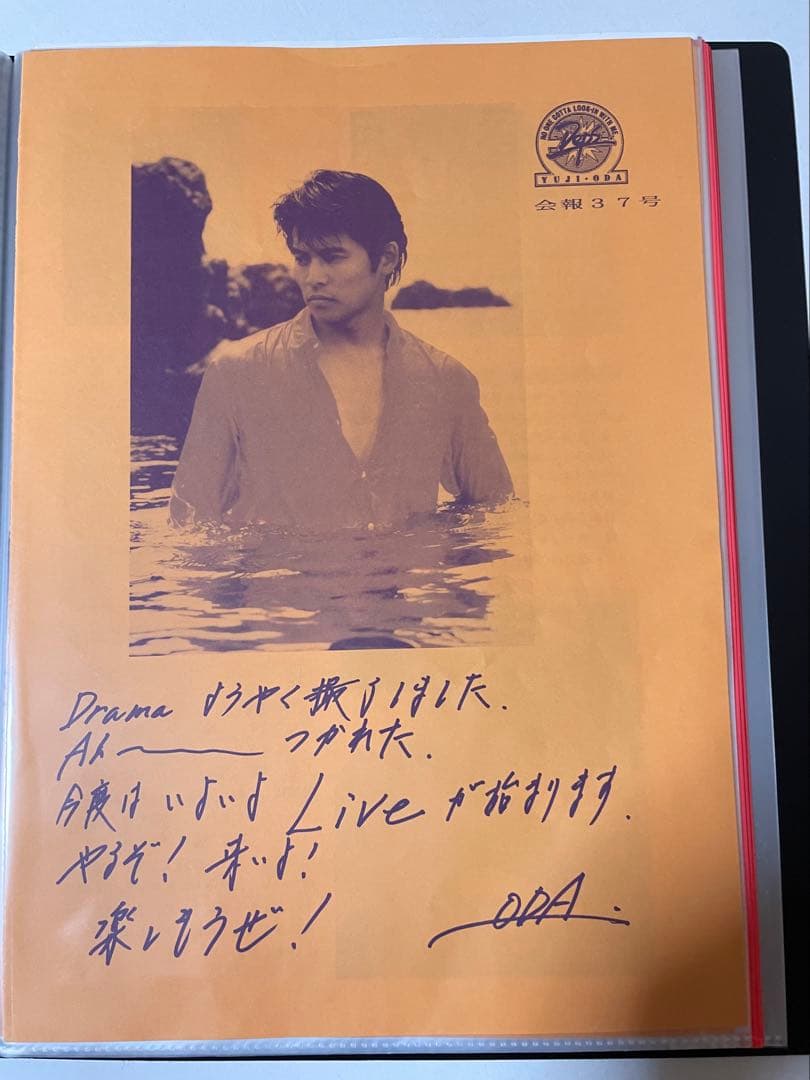 NO ONE GOTTA LOOK-IN WITH ME.
YUJI・ODA
会報37号
Drama ようやく撮了しました.
Ah〜 つかれた.
今度は いよいよ Live が始まります.
やるぞ! 来いよ!
楽しもうぜ!
ODA.